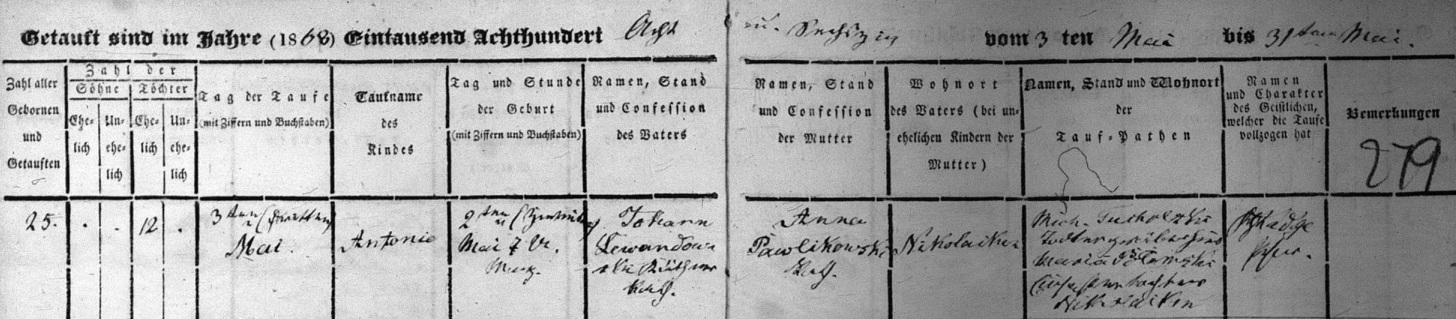 Getauft sind im Jahre (1868) Eintausend Achthundert Acht u. Sechszig vom 3 ten Mai bis 31ten Mai.
Zahl aller Gebornen und Getauften
Zahl der
Söhne
Töchter
Ehe-lich
Un-ehe-lich
Ehe-lich
Un-ehe-lich
Tag der Taufe
(mit Ziffern und Buchstaben)
Taufname
des
Kindes
Tag und Stunde
der Geburt
(mit Ziffern und Buchstaben)
Namen, Stand
und Confession
des Vaters
Namen, Stand
und Confession
der Mutter
Wohnort
des Vaters (bei un-
ehelichen Kindern der
Mutter)
Namen, Stand und Wohnort
der
Tauf-Pathen
Namen
und Charakter
des Geistlichen,
welcher die Taufe
vollzogen hat
Bemerkungen
279
25.
12
3ten (dritten)
Mai.
Antonie
2ten (zweiten)
Mai 7 U.
Morg.
Johann
Lewandow-
ski
Kath.
Anna
Pawlikowski
Kath.
Nikolaiken
Mich.
Maria
Nikolaiken
Pfar.